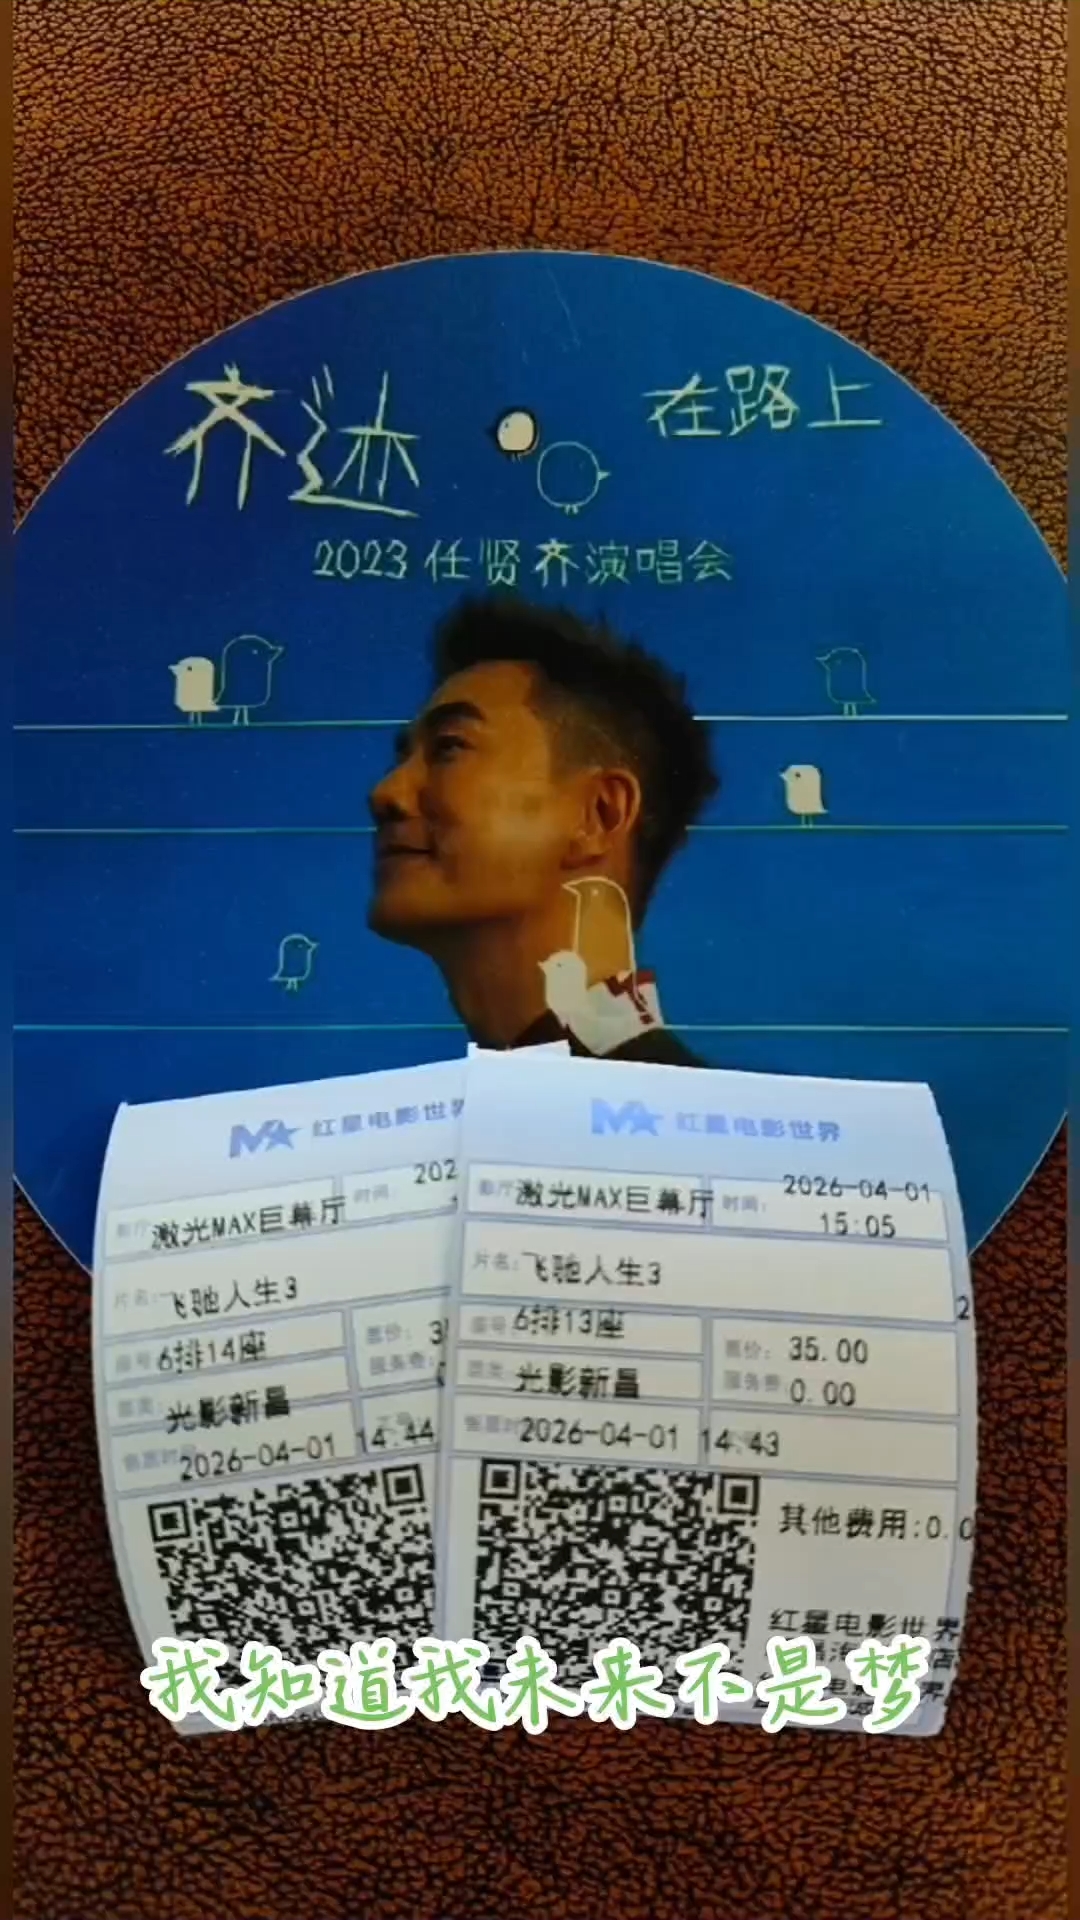 齐迹
在路上
2023任贤齐演唱会
红星电影世界
影厅 激光MAX巨幕厅
时间: 202
片名: 飞驰人生3
座号 6排14座
票价: 3
服务费:
票类: 光影新昌
售票时 2026-04-01 14:44
红星电影世界
影厅 激光MAX巨幕厅
时间: 2026-04-01
15:05
片名: 飞驰人生3
座号: 6排13座
票价: 35.00
服务费 0.00
票类: 光影新昌
售票时 2026-04-01 14:43
其他费用:0.0
红星电影世界
店
我知道我未来不是梦